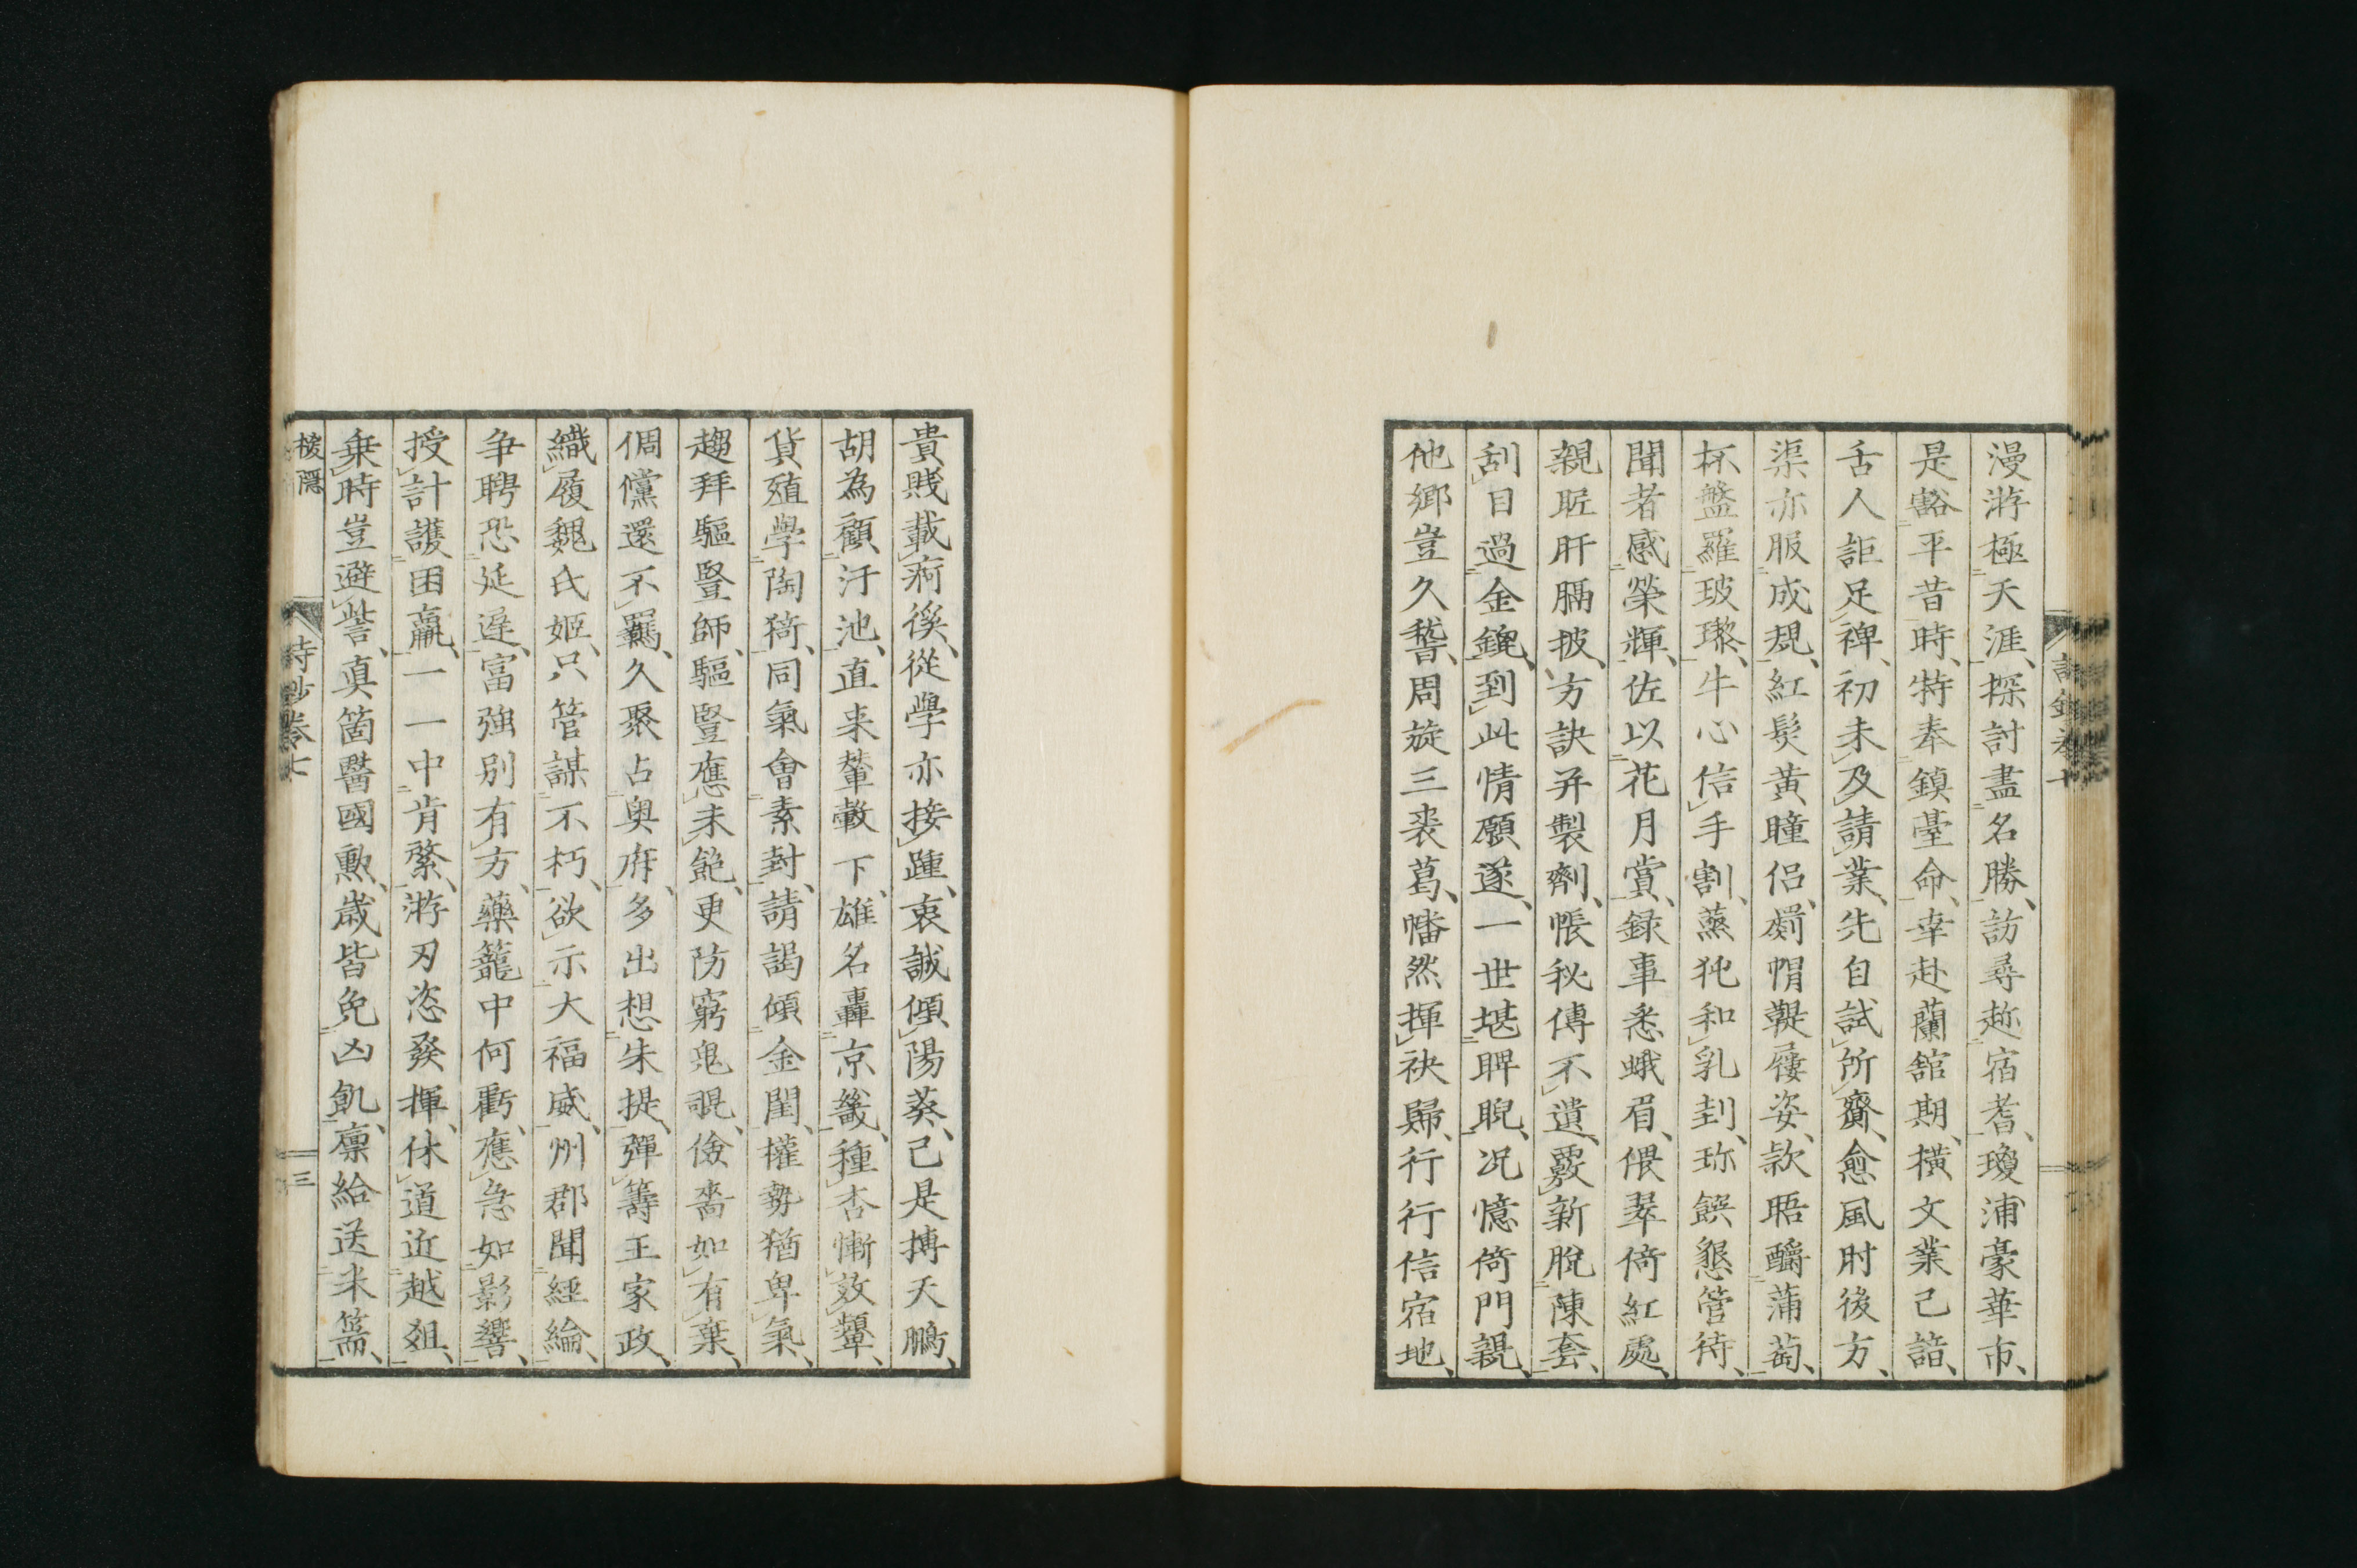 漫游極天涯、探討盡名勝、訪尋趂宿耆、瓊浦豪華市、
是豁平昔時、特奉鎮臺命、幸赴蘭舘期、橫文業已諳、
舌人詎足裨、初未及請業、先自試所齎、愈風肘後方、
渠亦服成規、紅髮黃瞳侶、罽帽鞮屨姿、款晤酹蒲萄、
杯盤羅玻瓈、牛心信手割、蒸㹠和乳刲、珍饌懇管待、
聞者感榮輝、佐以花月賞、錄事悉蛾眉、偎翠倚紅處、
親眡肝膈披、方訣并製劑、帳秘傳不遺、覈新脫陳套、
刮目過金鎞、到此情願遂、一世堪睥睨、况憶倚門親、
他鄉豈久嵇、周旋三裘葛、幡然揮袂歸、行行信宿地、
貴賤載痾徯、從學亦接踵、衷誠傾陽葵、已是摶天鵬、
胡為顧汙池、直来輦轂下、雄名轟京畿、種杏慚效顰、
貨殖學陶猗、同氣會素封、請謁傾金閨、權勢猶卑氣、
趨拜驅豎師、驅豎應未飽、更防窮鬼覗、儉嗇如有棄、
倜儻還不羈、久聚占奥府、多出想朱提、彈籌王家政、
織履魏氏姬、只管謀不朽、欲示大福威、州郡聞經綸、
争聘恐延遲、富強別有方、藥籠中何虧、應急如影響、
授計護困羸、一一中肯綮、游刃恣發揮、休道近越俎、
乗時豈避訾、真箇醫國勲、歲皆免凶飢、廪給送米篅、
棱隱
詩鈔卷七
三